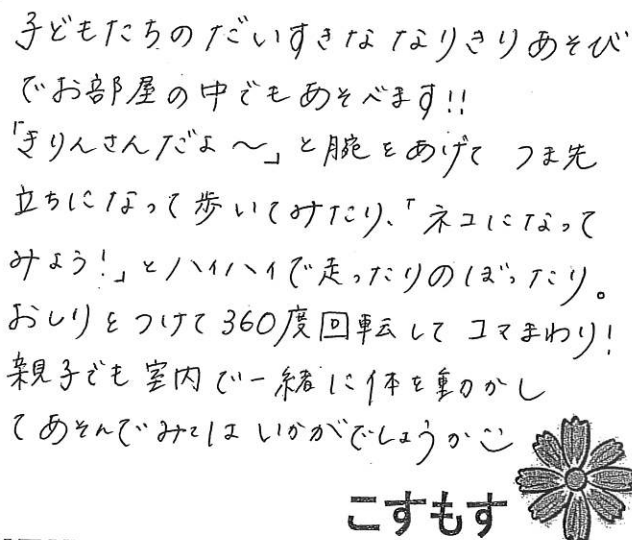 子どもたちのだいすきななりきりあそび
でお部屋の中でもあそべます!!
「きりんさんだよ～」と腕をあげて つま先
立ちになって歩いてみたり、「ネコになって
みよう!」とハイハイで走ったりのぼったり。
おしりをつけて360度回転してコマまわり!
親子でも室内で一緒に体を動かし
てあそんでみてはいかがでしょうか
こすもす